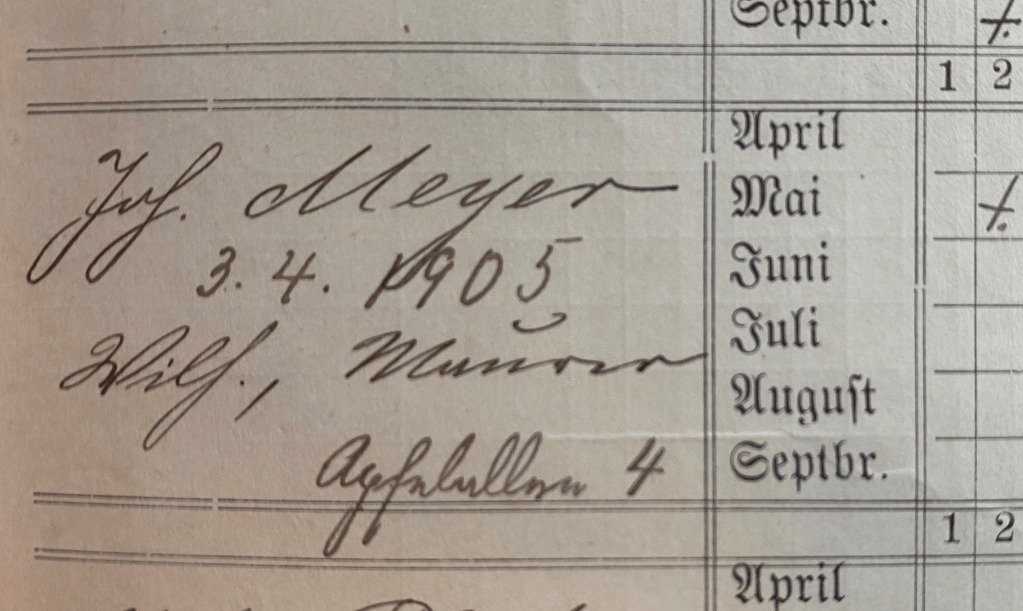 Septbr.
1 2
April
Joh. Meyer
Mai
3. 4. 1905
Juni
Juli
Wilh., Maurer
August
Apfelallee 4
Septbr.
1 2
April